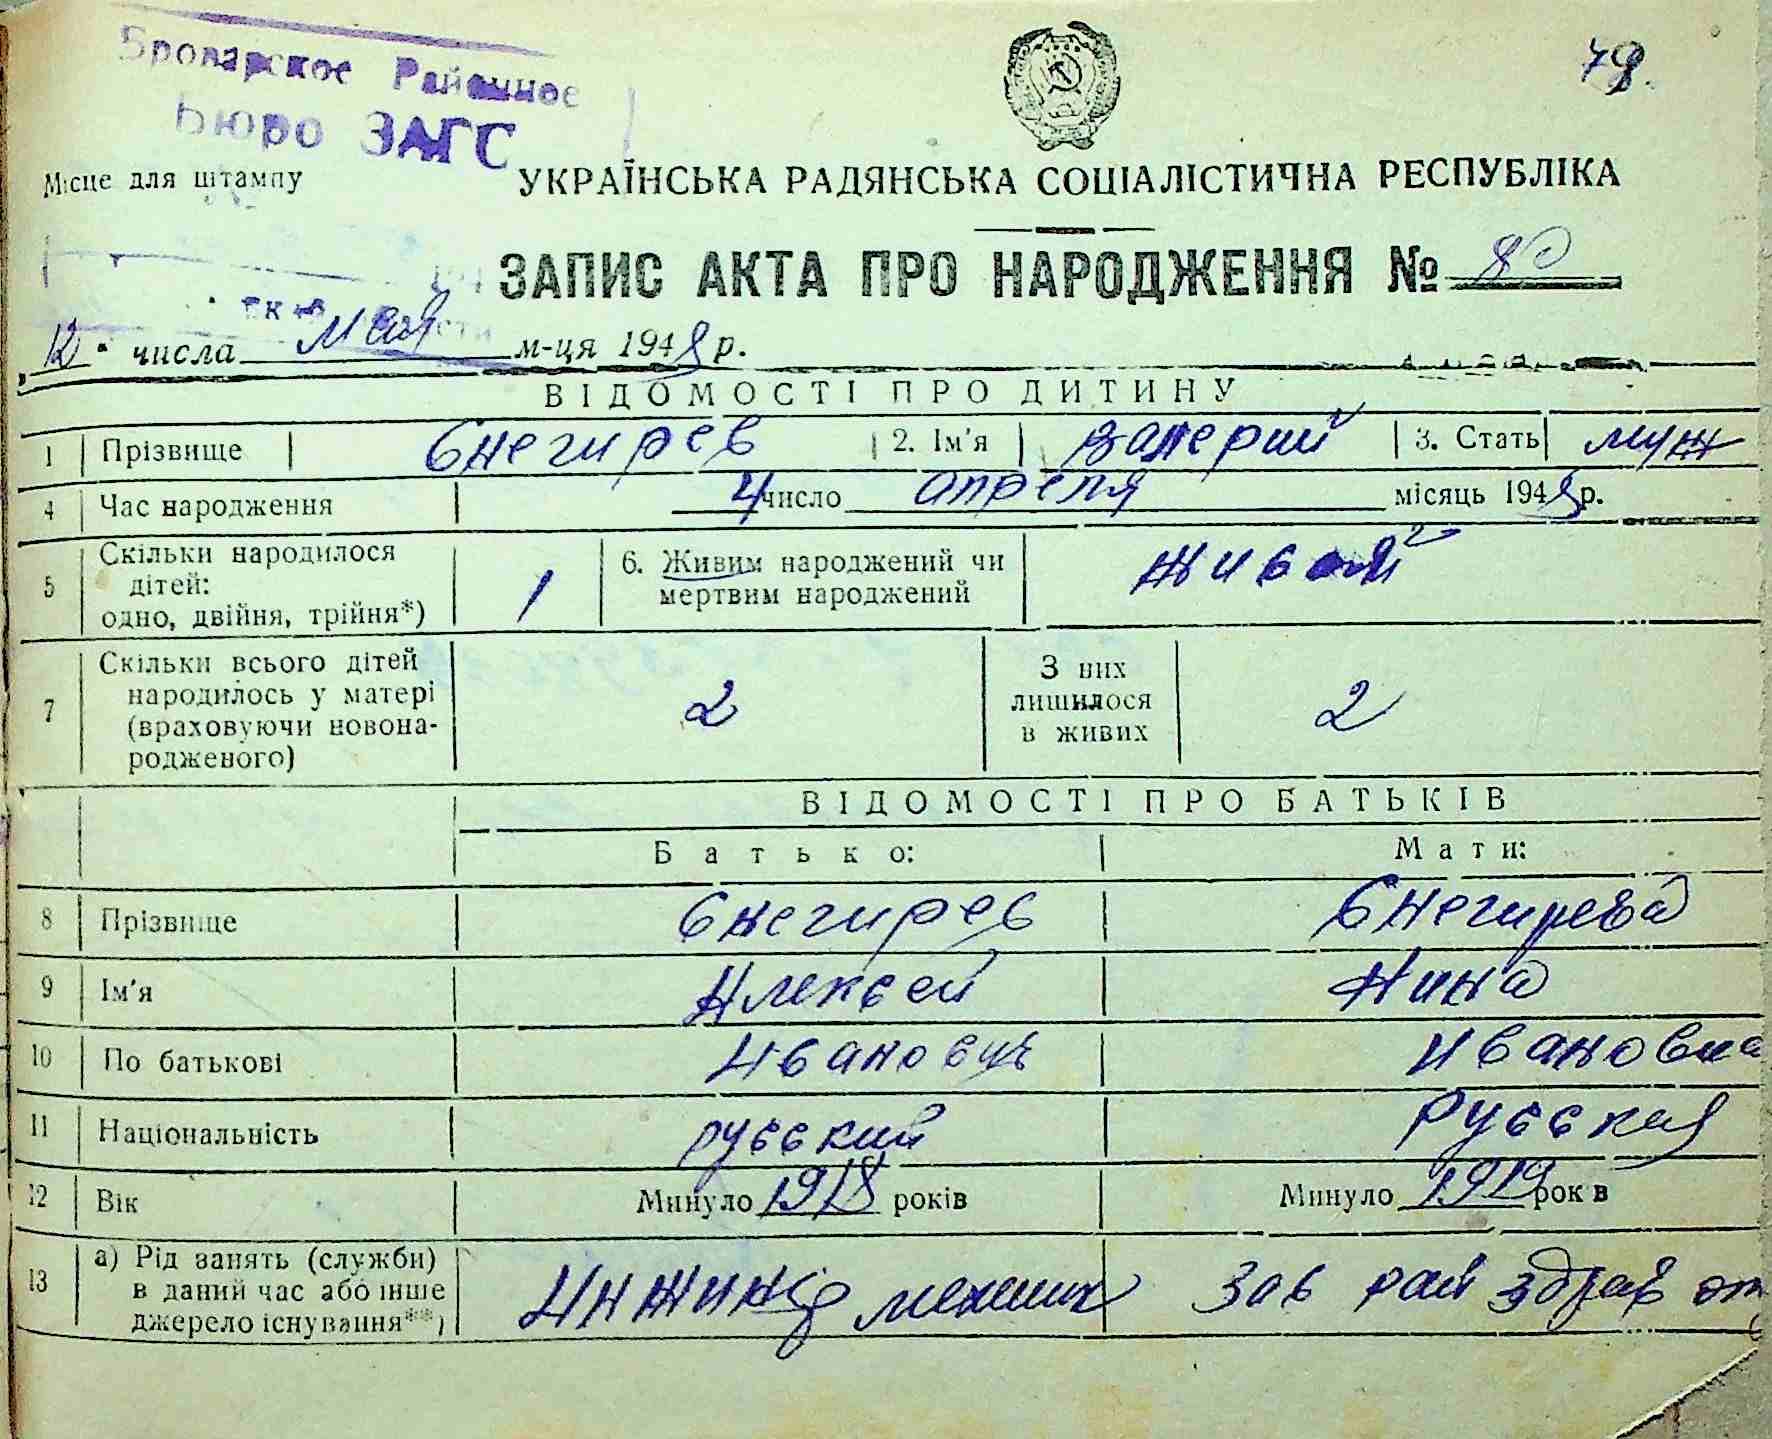 Броварское Районное
Бюро ЗАГС
79.
Місце для штампу
УКРАЇНСЬКА РАДЯНСЬКА СОЦІАЛІСТИЧНА РЕСПУБЛІКА
ЗАПИС АКТА ПРО НАРОДЖЕННЯ № 80
12 числа мая м-ця 1948 р.
ВІДОМОСТІ ПРО ДИТИНУ
1 Прізвище Снегирев 2. Ім'я Валерий 3. Стать муж
4 Час народження 4 число апреля місяць 1948 р.
5 Скільки народилося
дітей:
одно, двійня, трійня*) 1 6. Живим народжений чи
мертвим народжений живой
7 Скільки всього дітей
народилось у матері
(враховуючи новона-
родженого) 2 З них
лишилося
в живих 2
ВІДОМОСТІ ПРО БАТЬКІВ
Батько: Мати:
8 Прізвище Снегирев Снегирева
9 Ім'я Алексей Нина
10 По батькові Иванович Ивановна
11 Національність русский русская
12 Вік Минуло 1918 років Минуло 1919 рок в
13 а) Рід занять (служби)
в даний час або інше
джерело існування**) Инжинер механик Зав рай здрав от